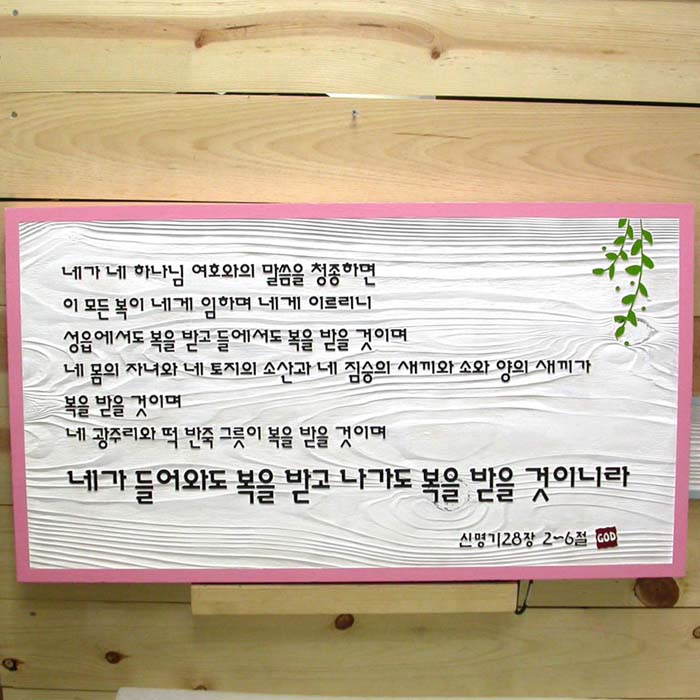 네가 네 하나님 여호와의 말씀을 청종하면
이 모든 복이 네게 임하며 네게 이르리니
성읍에서도 복을 받고 들에서도 복을 받을 것이며
네 몸의 자녀와 네 토지의 소산과 네 짐승의 새끼와 소와 양의 새끼가
복을 받을 것이며
네 광주리와 떡 반죽 그릇이 복을 받을 것이며
네가 들어와도 복을 받고 나가도 복을 받을 것이니라
신명기28장 2~6절 GOD